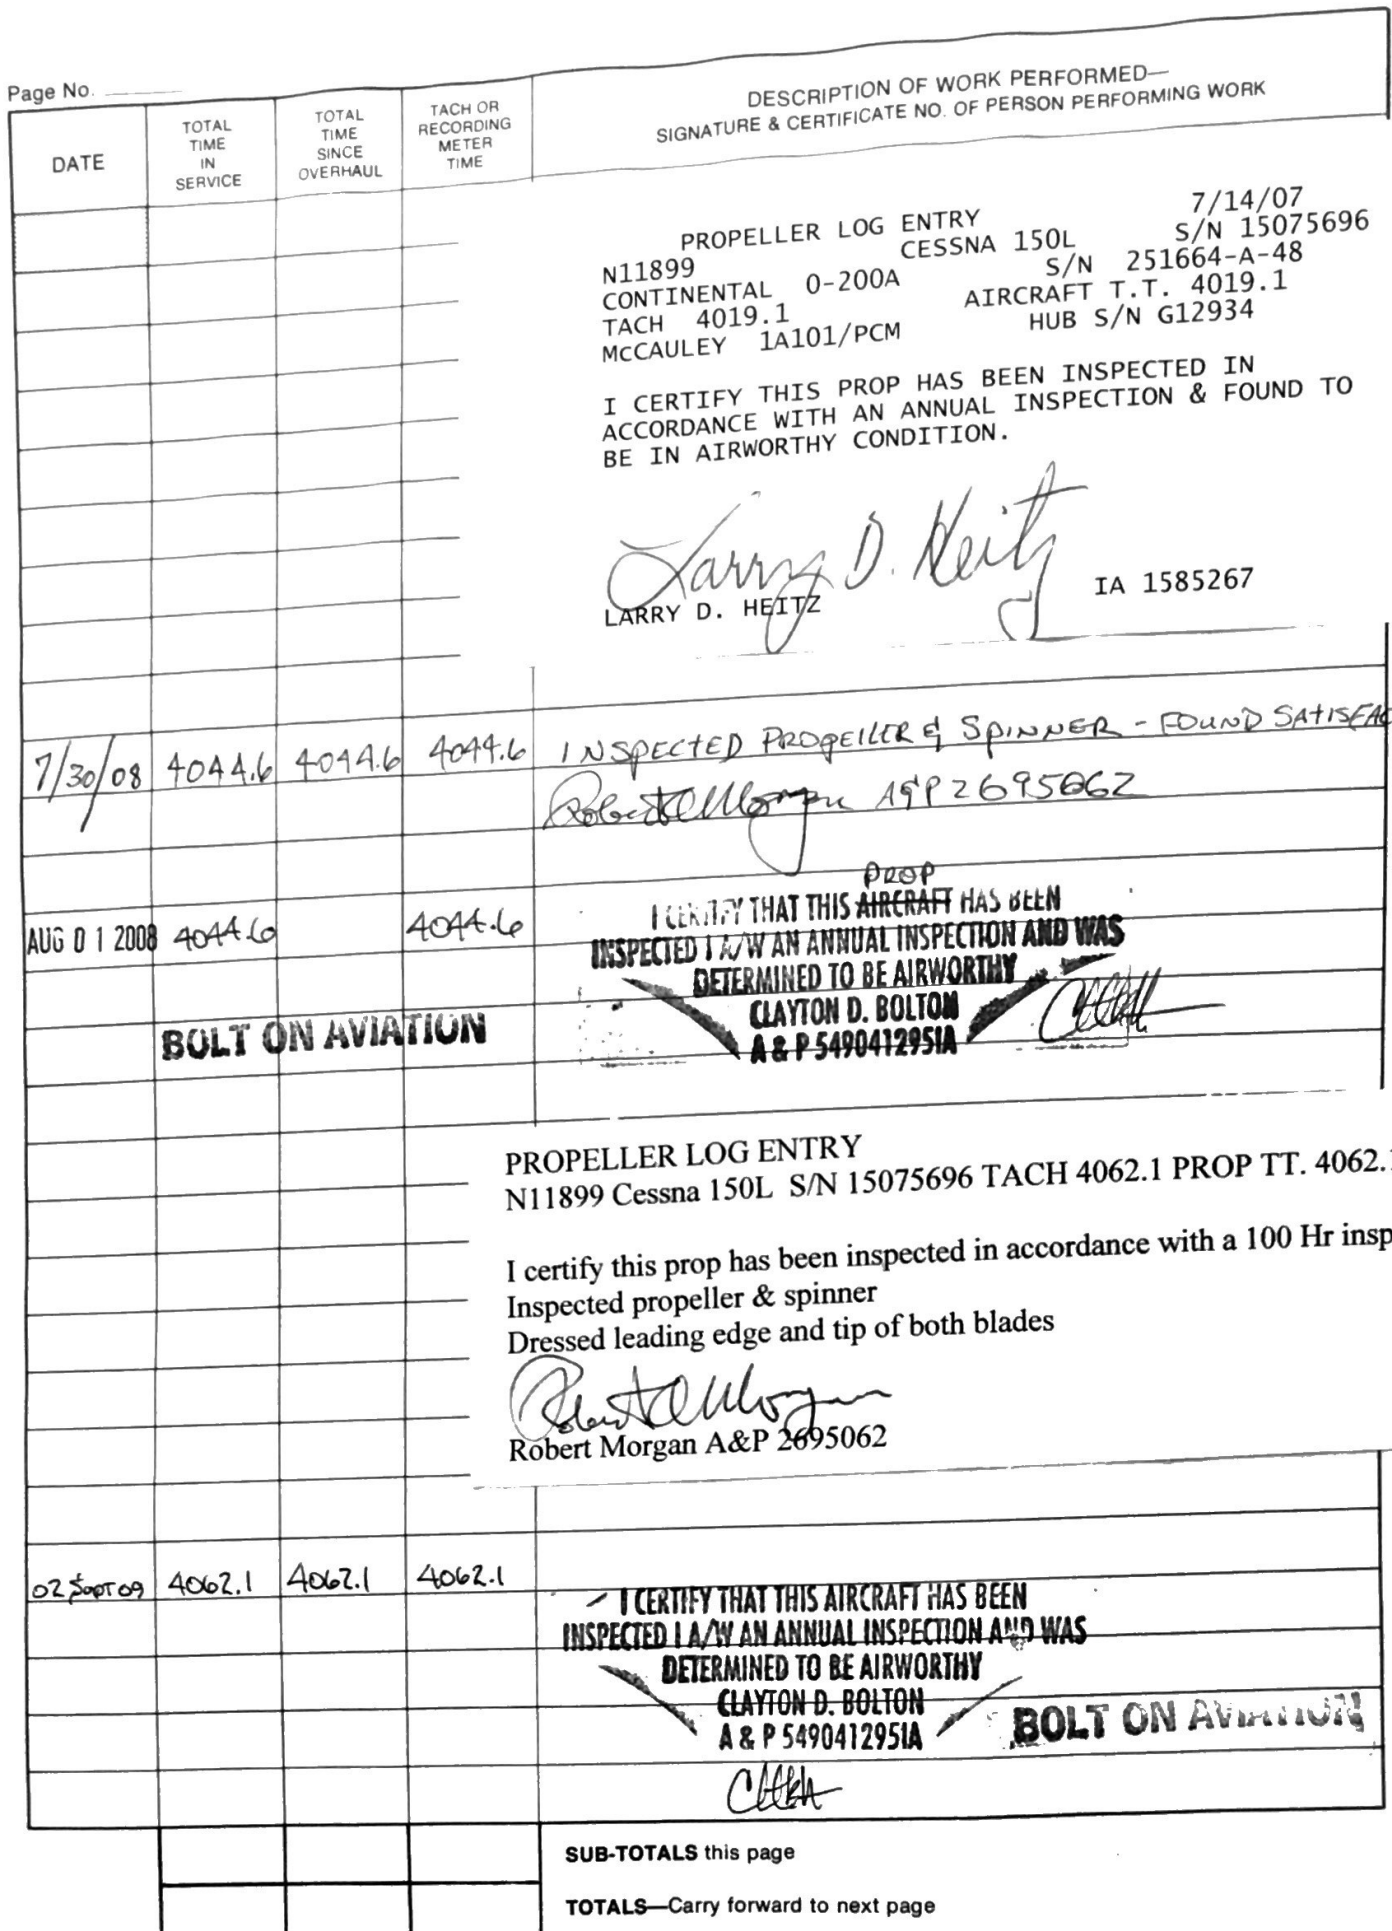 Page No.
DATE
TOTAL
TIME
IN
SERVICE
TOTAL
TIME
SINCE
OVERHAUL
TACH OR
RECORDING
METER
TIME
DESCRIPTION OF WORK PERFORMED—
SIGNATURE & CERTIFICATE NO. OF PERSON PERFORMING WORK
PROPELLER LOG ENTRY 7/14/07
N11899 CESSNA 150L S/N 15075696
CONTINENTAL O-200A S/N 251664-A-48
TACH 4019.1 AIRCRAFT T.T. 4019.1
MCCAULEY 1A101/PCM HUB S/N G12934
I CERTIFY THIS PROP HAS BEEN INSPECTED IN
ACCORDANCE WITH AN ANNUAL INSPECTION & FOUND TO
BE IN AIRWORTHY CONDITION.
Larry D. Heitz
LARRY D. HEITZ IA 1585267
7/30/08 4044.6 4044.6 4044.6 INSPECTED PROPELLER & SPINNER - FOUND SATISFAC
Robert Morgan A&P 2695062
PROP
AUG 01 2008 4044.6 4044.6 I CERTIFY THAT THIS AIRCRAFT HAS BEEN
INSPECTED I A/W AN ANNUAL INSPECTION AND WAS
DETERMINED TO BE AIRWORTHY
CLAYTON D. BOLTON
A & P 549041295IA
BOLT ON AVIATION
PROPELLER LOG ENTRY
N11899 Cessna 150L S/N 15075696 TACH 4062.1 PROP TT. 4062.1
I certify this prop has been inspected in accordance with a 100 Hr insp
Inspected propeller & spinner
Dressed leading edge and tip of both blades
Robert Morgan
Robert Morgan A&P 2695062
02 Sept 09 4062.1 4062.1 4062.1
I CERTIFY THAT THIS AIRCRAFT HAS BEEN
INSPECTED I A/W AN ANNUAL INSPECTION AND WAS
DETERMINED TO BE AIRWORTHY
CLAYTON D. BOLTON
A & P 549041295IA
BOLT ON AVIATION
SUB-TOTALS this page
TOTALS—Carry forward to next page